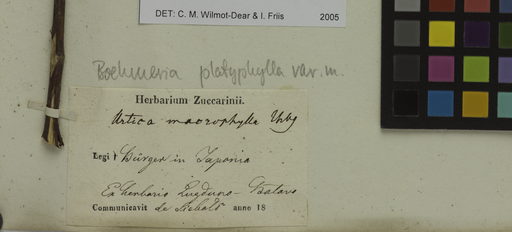 DET: C. M. Wilmot-Dear & I. Friis 2005
Boehmeria platyphylla var. m.
Herbarium Zuccarinii.
Urtica macrophylla Thbg
Legi Bürger in Japonia
Ex herbario Lugduno-Batavo
Communicavit de Siebold anno 18